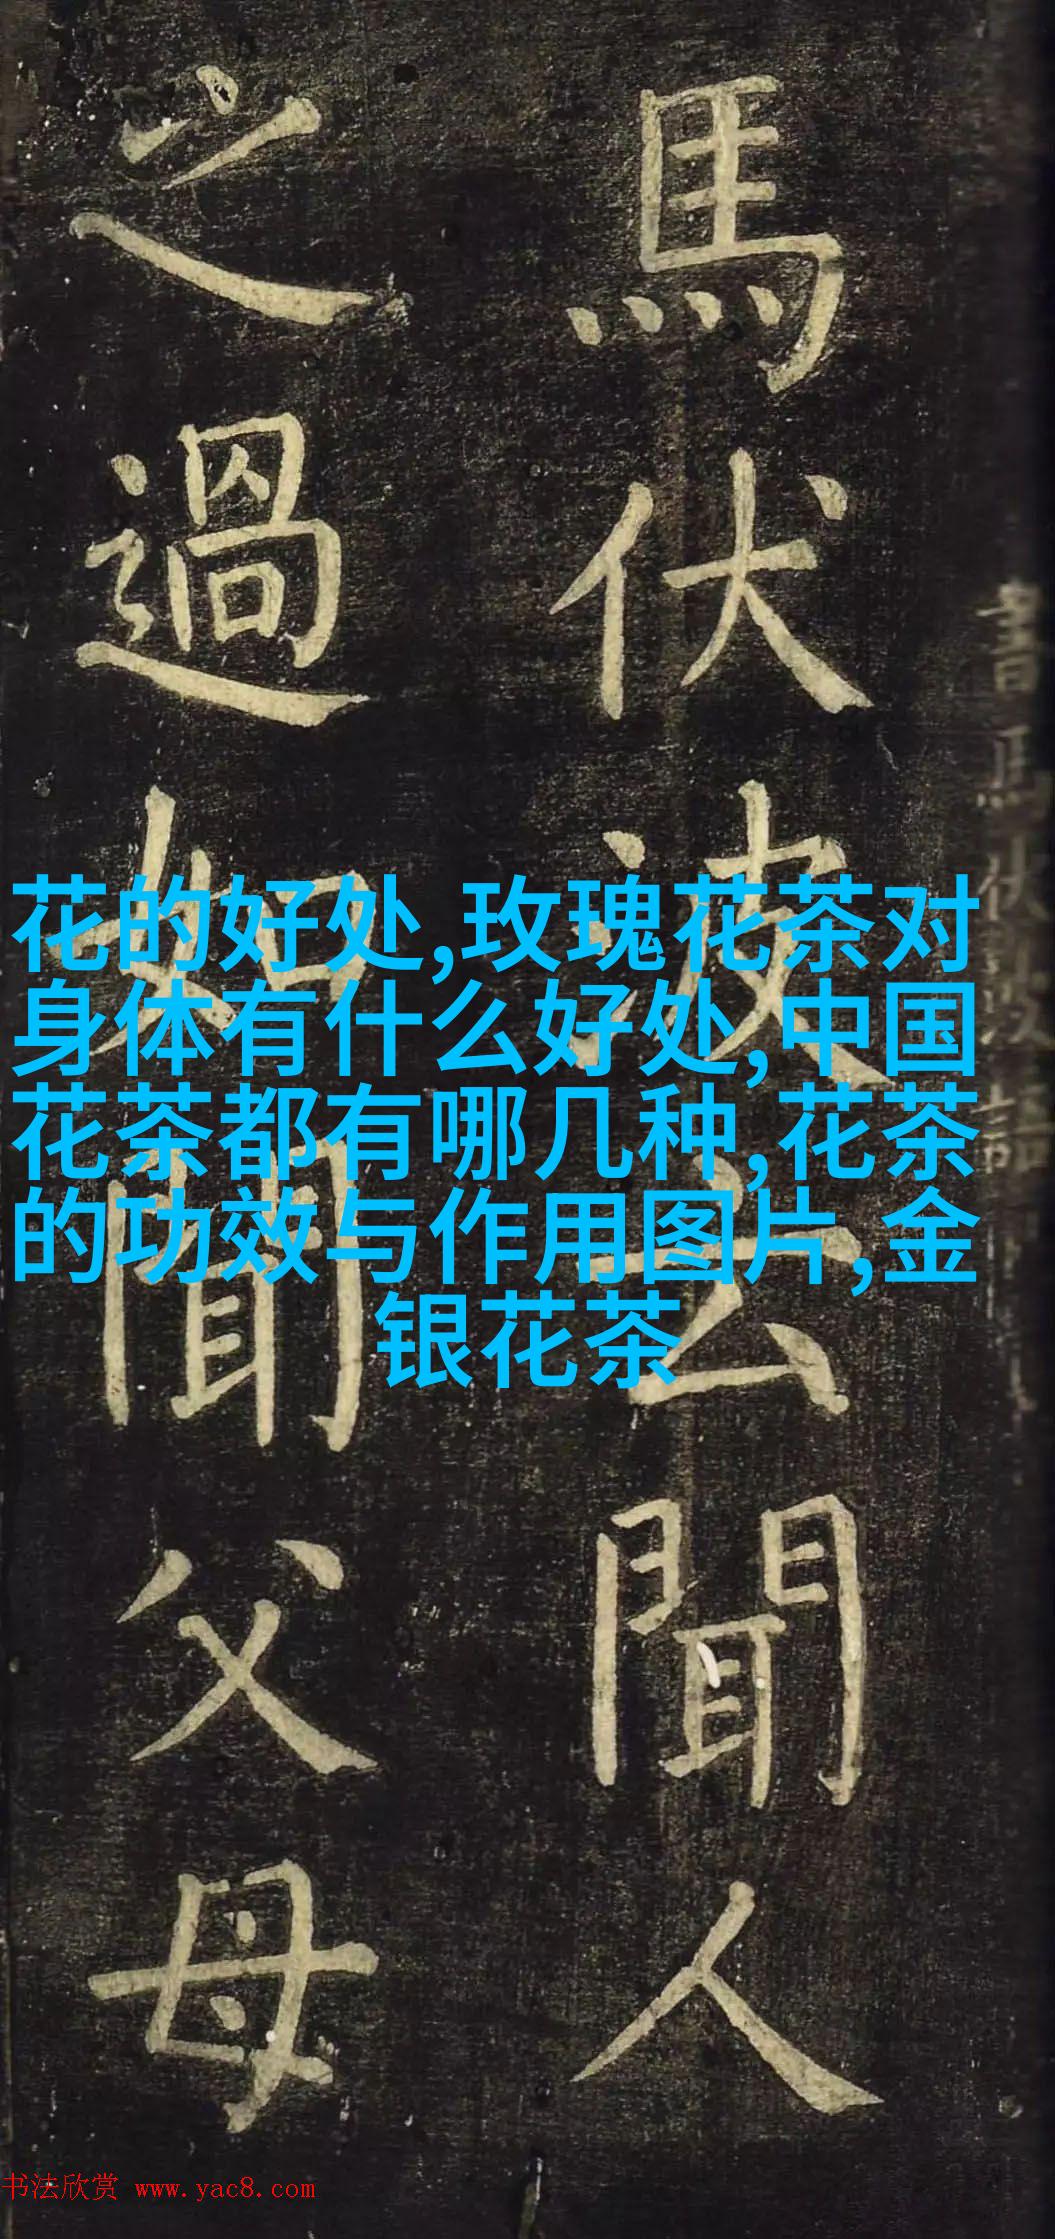 馬伏波云聞人
之過如聞父母
花的好处,玫瑰花茶对
身体有什么好处,中国
花茶都有哪几种,花茶
的功效与作用图片,金
银花茶
书法欣赏 www.yac8.com